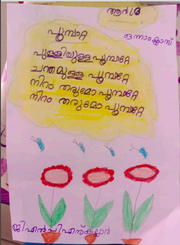 ആർദ്ര
ഒന്നാംക്ലാസ്
പൂമ്പാറ്റ
പുള്ളിയുള്ള പൂമ്പാറ്റേ
ചന്തമുള്ള പൂമ്പാറ്റേ
നിറം തരുമോ പൂമ്പാറ്റേ
നിറം തരുമോ പൂമ്പാറ്റേ